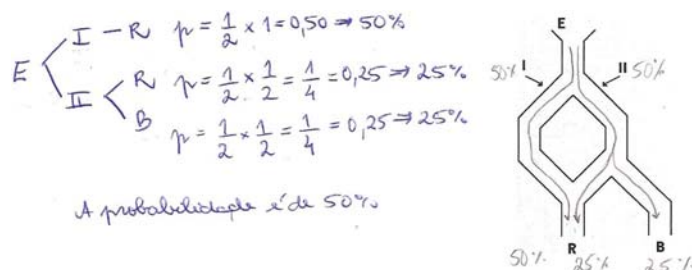 E
I — R p = 1/2 × 1 = 0,50 ⇒ 50%
II
R p = 1/2 × 1/2 = 1/4 = 0,25 ⇒ 25%
B p = 1/2 × 1/2 = 1/4 = 0,25 ⇒ 25%
A probabilidade é de 50%
E
50% I II 50%
R B
50% 25% 25%